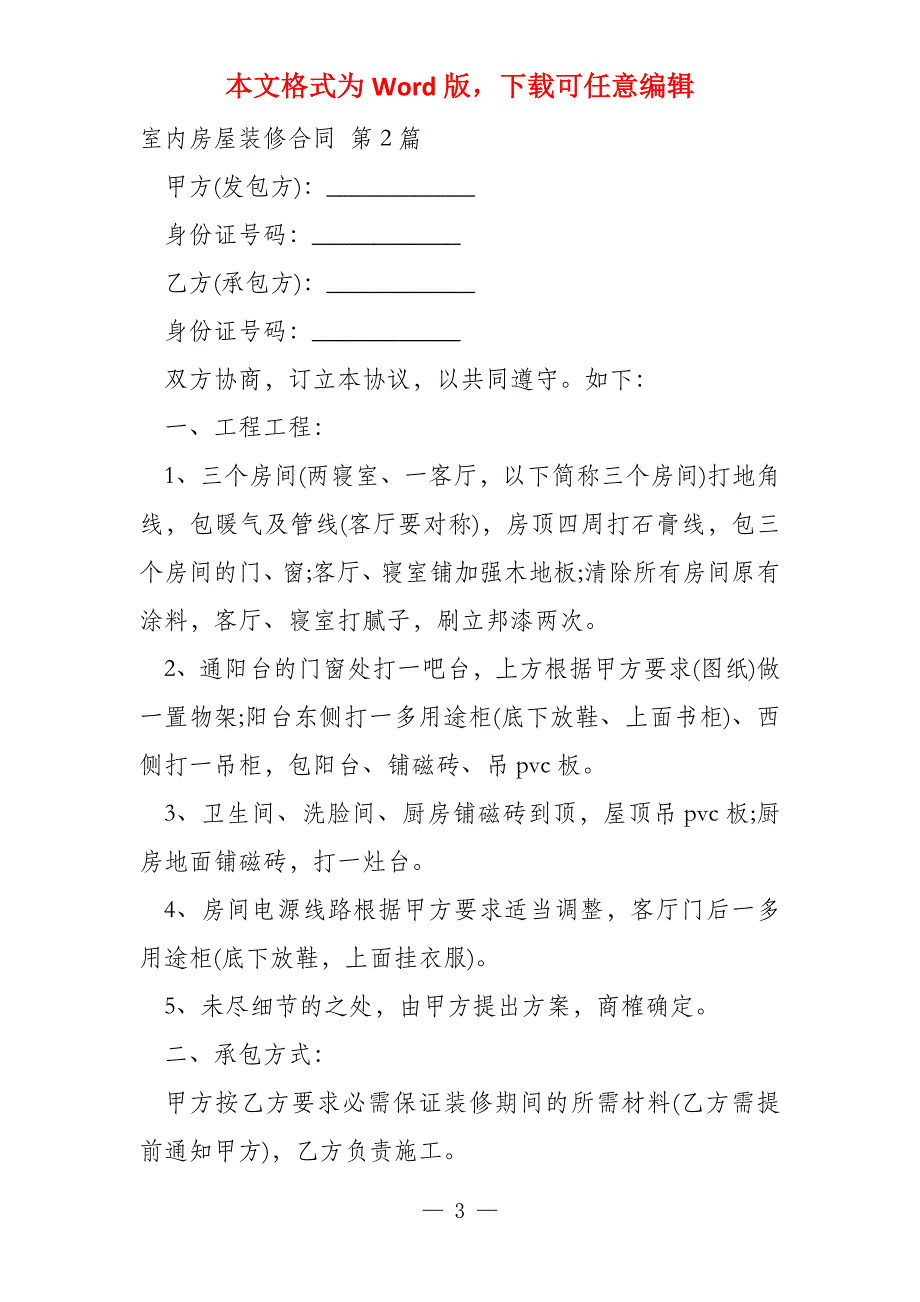 本文格式为 Word 版，下载可任意编辑
室内房屋装修合同 第 2 篇
甲方(发包方)：_____________
身份证号码：_____________
乙方(承包方)：_____________
身份证号码：_____________
双方协商，订立本协议，以共同遵守。如下：
一、工程工程：
1、三个房间(两寝室、一客厅，以下简称三个房间)打地角
线，包暖气及管线(客厅要对称)，房顶四周打石膏线，包三
个房间的门、窗;客厅、寝室铺加强木地板;清除所有房间原有
涂料，客厅、寝室打腻子，刷立邦漆两次。
2、通阳台的门窗处打一吧台，上方根据甲方要求(图纸)做
一置物架;阳台东侧打一多用途柜(底下放鞋、上面书柜)、西
侧打一吊柜，包阳台、铺磁砖、吊 pvc 板。
3、卫生间、洗脸间、厨房铺磁砖到顶，屋顶吊 pvc 板;厨
房地面铺磁砖，打一灶台。
4、房间电源线路根据甲方要求适当调整，客厅门后一多
用途柜(底下放鞋，上面挂衣服)。
5、未尽细节的之处，由甲方提出方案，商榷确定。
二、承包方式：
甲方按乙方要求必需保证装修期间的所需材料(乙方需提
前通知甲方)，乙方负责施工。
— 3 —